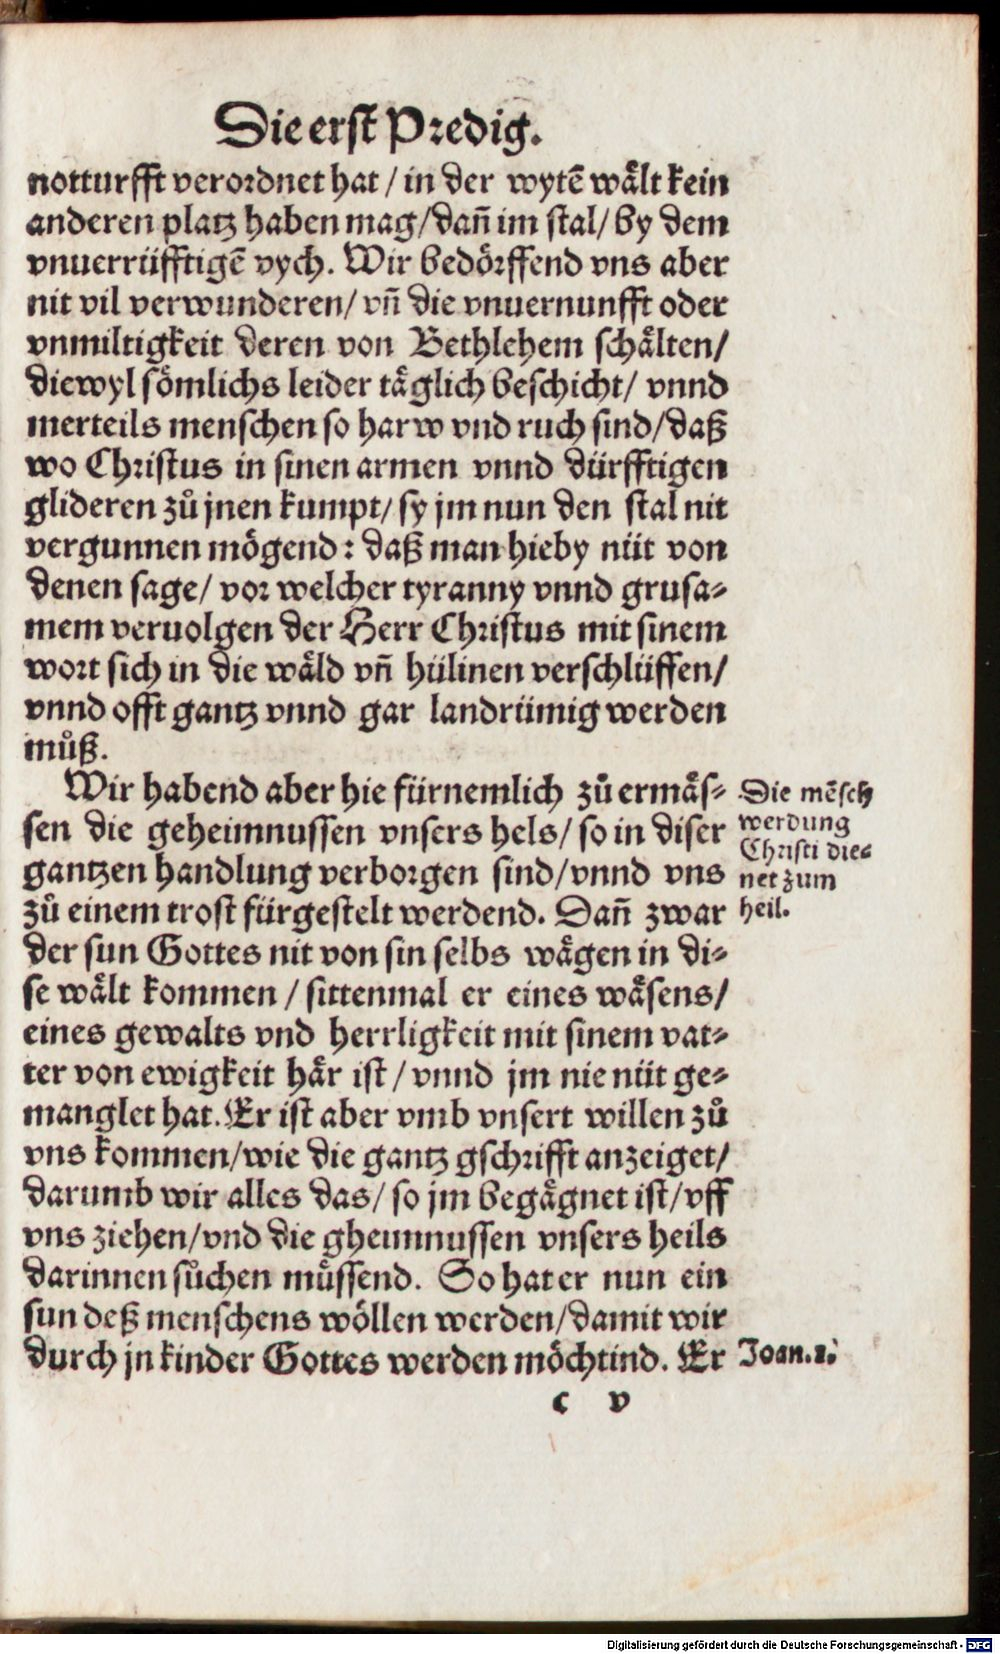 Die erst Predig.
notturfft verordnet hat / in der wytē wält kein
anderen platz haben mag/dañ im stal/ by dem
vnuerrüfftigē vych. Wir bedörffend vns aber
nit vil verwunderen/ vñ die vnuernunfft oder
vnmiltigkeit deren von Bethlehem schälten/
diewyl sömlichs leider täglich beschicht/ vnnd
merteils menschen so harw vnd ruch sind/daß
wo Christus in sinen armen vnnd dürfftigen
glideren zů jnen kumpt/ sy jm nun den stal nit
vergunnen mögend: daß man hieby nüt von
denen sage/ vor welcher tyranny vnnd grusa⸗
mem veruolgen der Herr Christus mit sinem
wort sich in die wäld vñ hülinen verschlüffen/
vnnd offt gantz vnnd gar landrümig werden
můß.
Wir habend aber hie fürnemlich zů ermäs⸗
sen die geheimnussen vnsers hels/ so in diser
gantzen handlung verborgen sind/vnnd vns
zů einem trost fürgestelt werdend. Dañ zwar
der sun Gottes nit von sin selbs wägen in di⸗
se wält kommen / sittenmal er eines wäsens/
eines gewalts vnd herrligkeit mit sinem vat⸗
ter von ewigkeit här ist / vnnd jm nie nüt ge⸗
manglet hat. Er ist aber vmb vnsert willen zů
vns kommen/wie die gantz gschrifft anzeiget/
darumb wir alles das/ so jm begägnet ist/vff
vns ziehen/vnd die gheimnussen vnsers heils
darinnen sůchen müssend. So hat er nun ein
sun deß menschens wöllen werden/damit wir
durch jn kinder Gottes werden möchtind. Er
Die mēsch
werdung
Christi die⸗
net zum
heil.
Joan.1.
c v
Digitalisierung gefördert durch die Deutsche Forschungsgemeinschaft - DFG